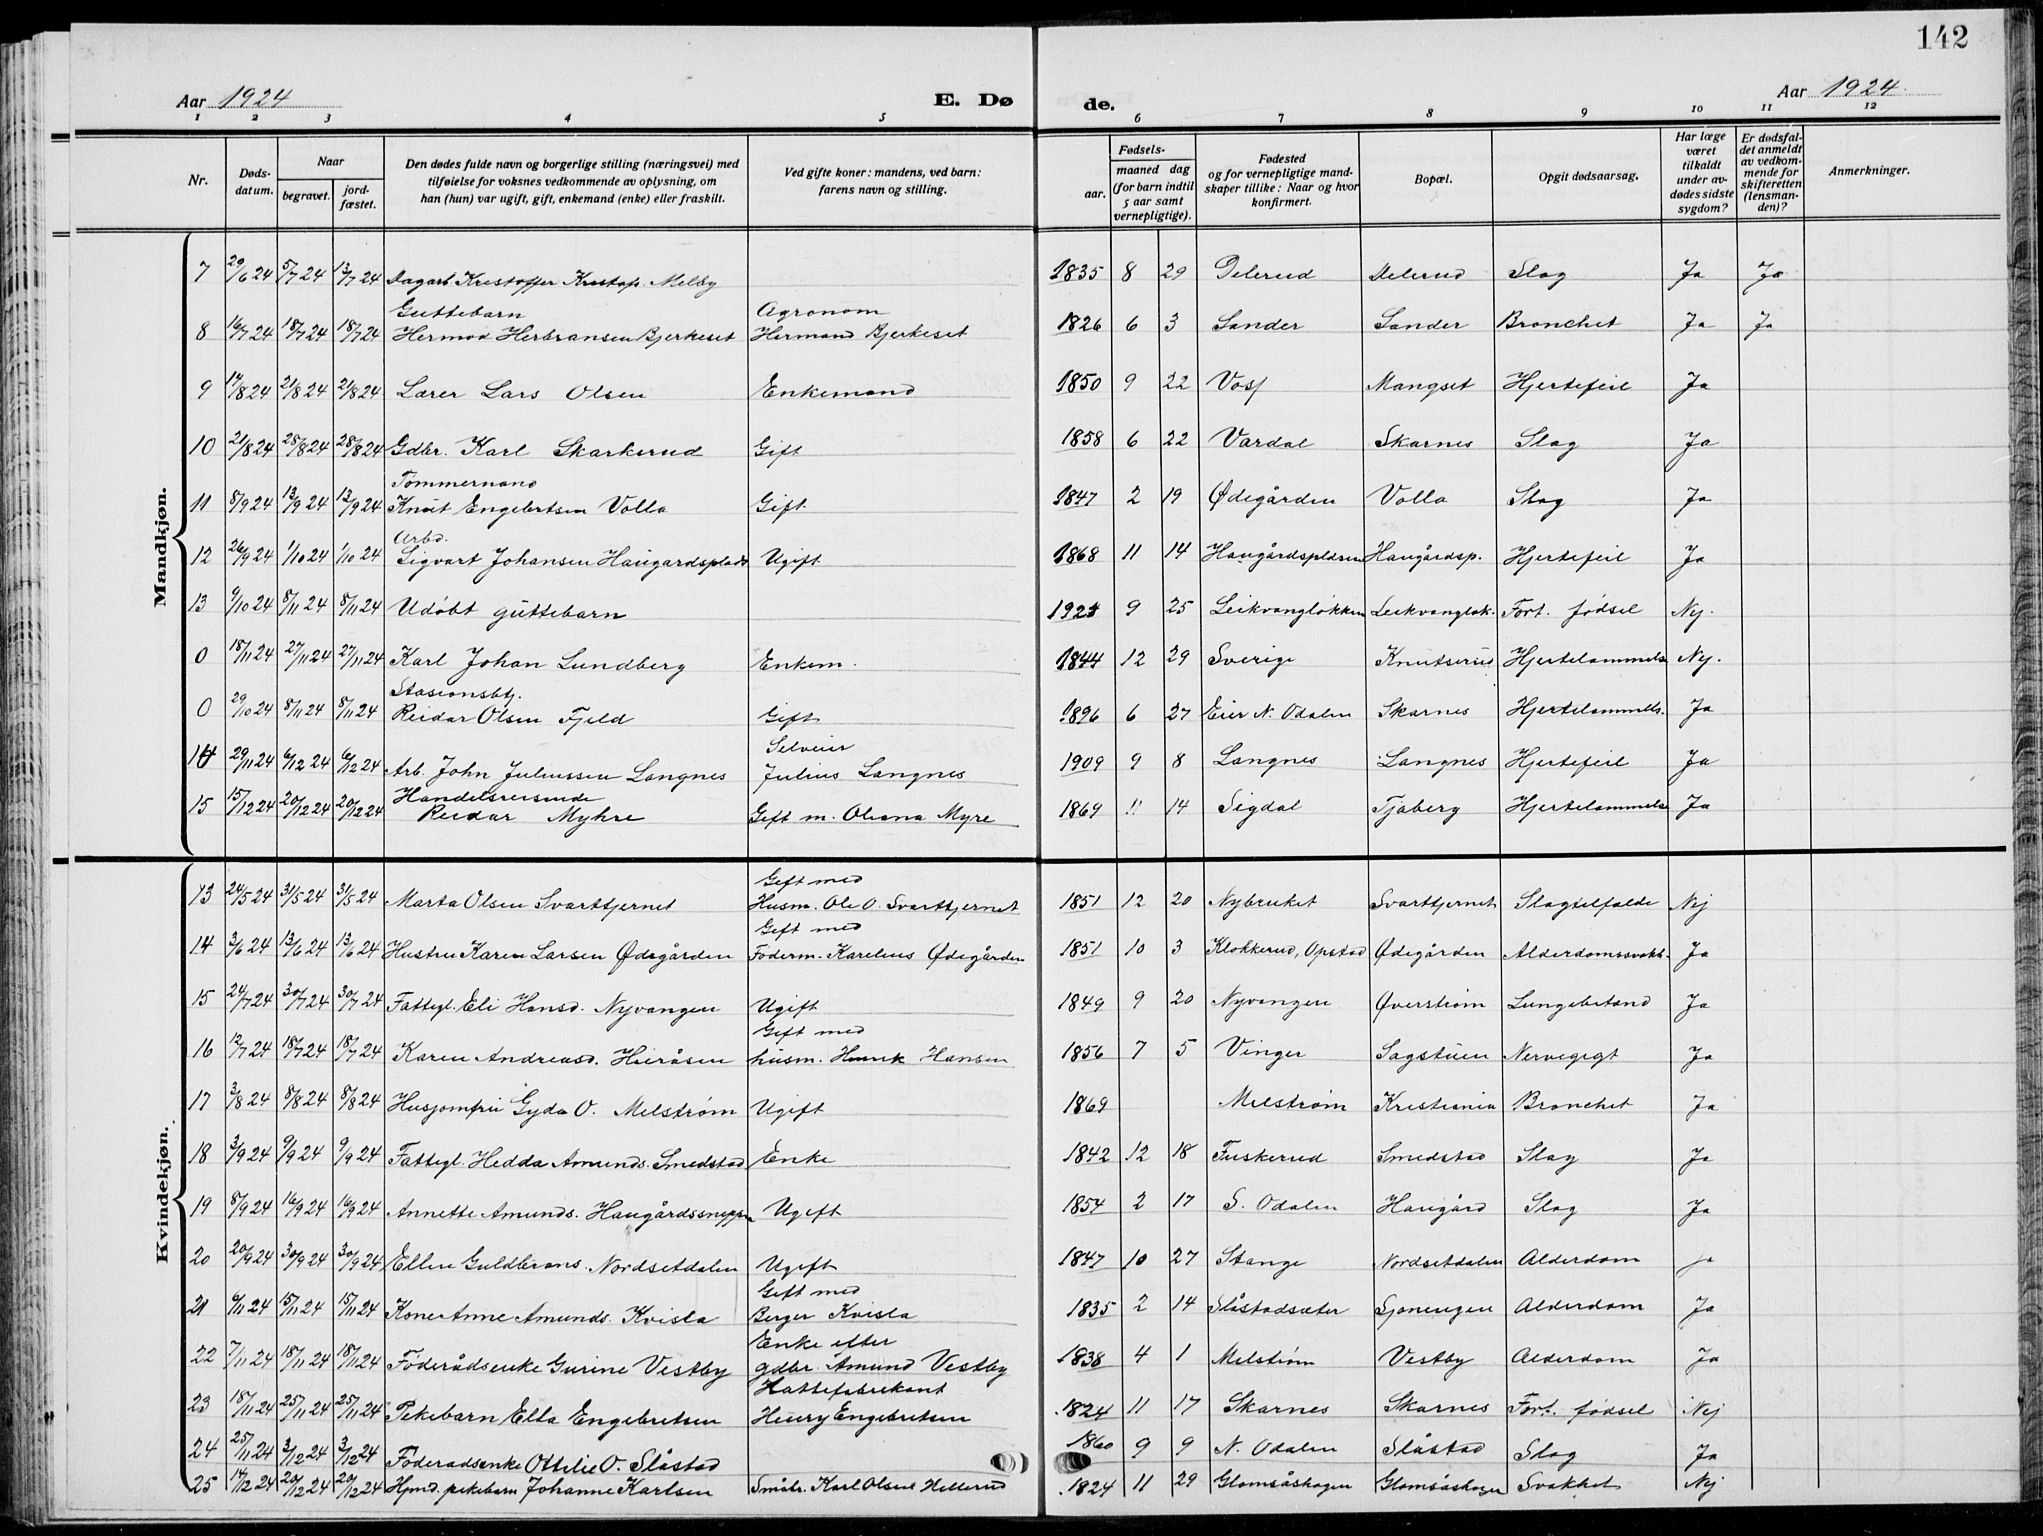 142
Aar 1924 E. Dø de. Aar 1924
1 2 3 4 5 6 7 8 9 10 11 12
Nr.
Døds-
datum.
Naar
begravet.
jord-
fæstet.
Den dødes fulde navn og borgerlige stilling (næringsvei) med
tilføielse for voksnes vedkommende av oplysning, om
han (hun) var ugift, gift, enkemand (enke) eller fraskilt.
Ved gifte koner: mandens, ved barn:
farens navn og stilling.
Fødsels-
aar.
maaned dag
(for barn indtil
5 aar samt
vernepligtige).
Fødested
og for vernepligtige mand-
skaper tillike: Naar og hvor
konfirmert.
Bopæl.
Opgit dødsaarsag.
Har læge
været
tilkaldt
under av-
dødes sidste
sygdom?
Er dødsfal-
det anmeldt
av vedkom-
mende for
skifteretten
(lensman-
den)?
Anmerkninger.
Mandkjøn.
7 29/6 24 5/7 24 13/7 24 Dagarb. Kristoffer Kristofs. Melby 1835 8 29 Delerud Delerud Slag Ja Ja
Guttebarn Agronom
8 16/7 24 18/7 24 18/7 24 Hermod Herbransen Bjerkeset Hermand Bjerkeset 1826 6 3 Sander Sander Bronchet Ja Ja
9 17/8 24 21/8 24 21/8 24 Lærer Lars Olsen Enkemand 1850 9 22 Voss Mangset Hjertefeil Ja
10 21/8 24 28/8 24 28/8 24 Gdbr. Karl Skarkerud Gift 1858 6 22 Vardal Skarnes Slag Ja
Tømmermand
11 8/9 24 13/9 24 13/9 24 Knut Engebretsen Volla Gift 1847 2 19 Ødegården Volla Slag Ja
Arbd.
12 26/9 24 1/10 24 1/10 24 Sigvart Johansen Haugardsplads Ugift 1868 11 14 Haugårdspladsen Haugårdsp. Hjertefeil Ja
13 9/10 24 8/11 24 8/11 24 Udøbt guttebarn 1924 9 25 Leikvangløkken Leikvangløk. Fort. fødsel Nej.
0 18/11 24 27/11 24 27/11 24 Karl Johan Lundberg Enkem. 1844 12 29 Sverige Knutserud Hjertelammels Nej.
Stasionsbtj.
0 29/10 24 8/11 24 8/11 24 Reidar Olsen Fjeld Gift 1896 6 27 Eier N. Odalen Skarnes Hjertelammels. Ja
Selveier
14 29/11 24 6/12 24 6/12 24 Arb. John Juliussen Langnes Julius Langnes 1909 9 8 Langnes Langnes Hjertefeil Ja
Handelsreisende
15 15/12 24 20/12 24 20/12 24 Reidar Myhre Gift m. Oleana Myre 1869 11 14 Sigdal Tjaberg Hjertelammelse Ja
Kvindekjøn.
Gift med
13 24/5 24 31/5 24 31/5 24 Marta Olsen Svarttjernet Husm. Ole O. Svarttjernet 1851 12 20 Nybruket Svarttjernet Slagtilfælde Nej
Gift med
14 3/6 24 13/6 24 13/6 24 Hustru Karen Larsen Ødegården Føderm. Karelius Ødegården 1851 10 3 Klokkerud, Opstad Ødegården Alderdomssvakh. Ja
15 24/7 24 30/7 24 30/7 24 Fattigl. Eli Hansd. Nyvangen Ugift 1849 9 20 Nyvangen Øverstrøm Lungebetænd Ja
Gift med
16 12/7 24 18/7 24 18/7 24 Karen Andreasd. Hieråsen husm. Henrik Hansen 1856 7 5 Vinger Sagstuen Nervegigt Ja
17 3/8 24 8/8 24 8/8 24 Husjomfru Gyda O. Melstrøm Ugift 1869 Melstrøm Kristiania Bronchet Ja
18 3/9 24 9/9 24 9/9 24 Fattigl. Hedda Amunds. Smedstad Enke 1842 12 18 Fuskerud Smedstad Slag Ja
19 8/9 24 16/9 24 16/9 24 Annette Amunds. Haugårdssneppen Ugift 1854 2 17 S. Odalen Haugård Slag Ja
20 20/9 24 30/9 24 30/9 24 Ellen Guldbrans. Nordsetdalen Ugift 1847 10 27 Stange Nordsetdalen Alderdom Ja
Gift med
21 6/11 24 15/11 24 15/11 24 Kone Anne Amunds. Kvisla Berger Kvisla 1835 2 14 Slåstadsæter Sjoningen Alderdom Ja
Enke efter
22 7/11 24 18/11 24 18/11 24 Føderådsenke Gurine Vestby gdbr. Amund Vestby 1838 4 1 Melstrøm Vestby Alderdom Ja
Hattefabrikant
23 18/11 24 25/11 24 25/11 24 Pikebarn Ella Engebretsen Henry Engebretsen 1824 11 17 Skarnes Skarnes Fort. fødsel Nej
24 25/11 24 3/12 24 3/12 24 Føderadsenke Ottilie O. Slåstad 1860 9 9 N. Odalen Slåstad Slag Ja
25 14/12 24 20/12 24 20/12 24 Hjmd. pikebarn Johanne Karlsen Småbr. Karl Olsen Hellerud 1824 11 29 Glomsåshagen Glomsåshagen Svakhet Nej